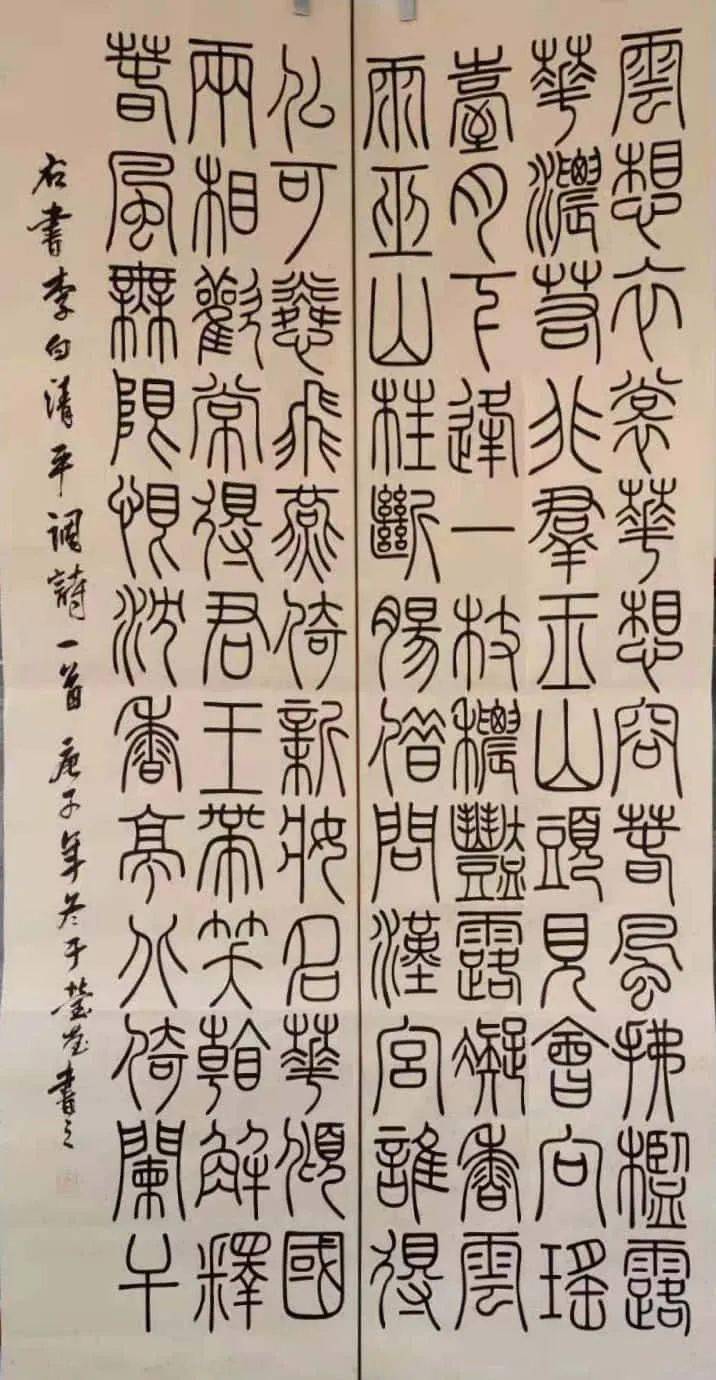 雲想衣裳華想容春風拂檻露
華濃若非羣玉山頭見會向瑤
臺月下逢一枝穠豔露凝香雲
雨巫山枉斷腸借問漢宮誰得
似可憐飛燕倚新妝名華傾國
兩相歡常得君王帶笑看解釋
春風無限恨沈香亭北倚闌干
右書李白清平調詩一首 庚子年冬于書之